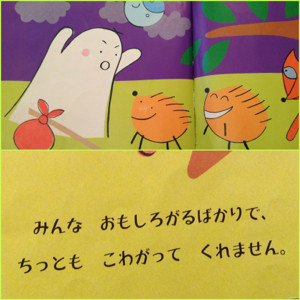 みんな おもしろがるばかりで、
ちっとも こわがって くれません。